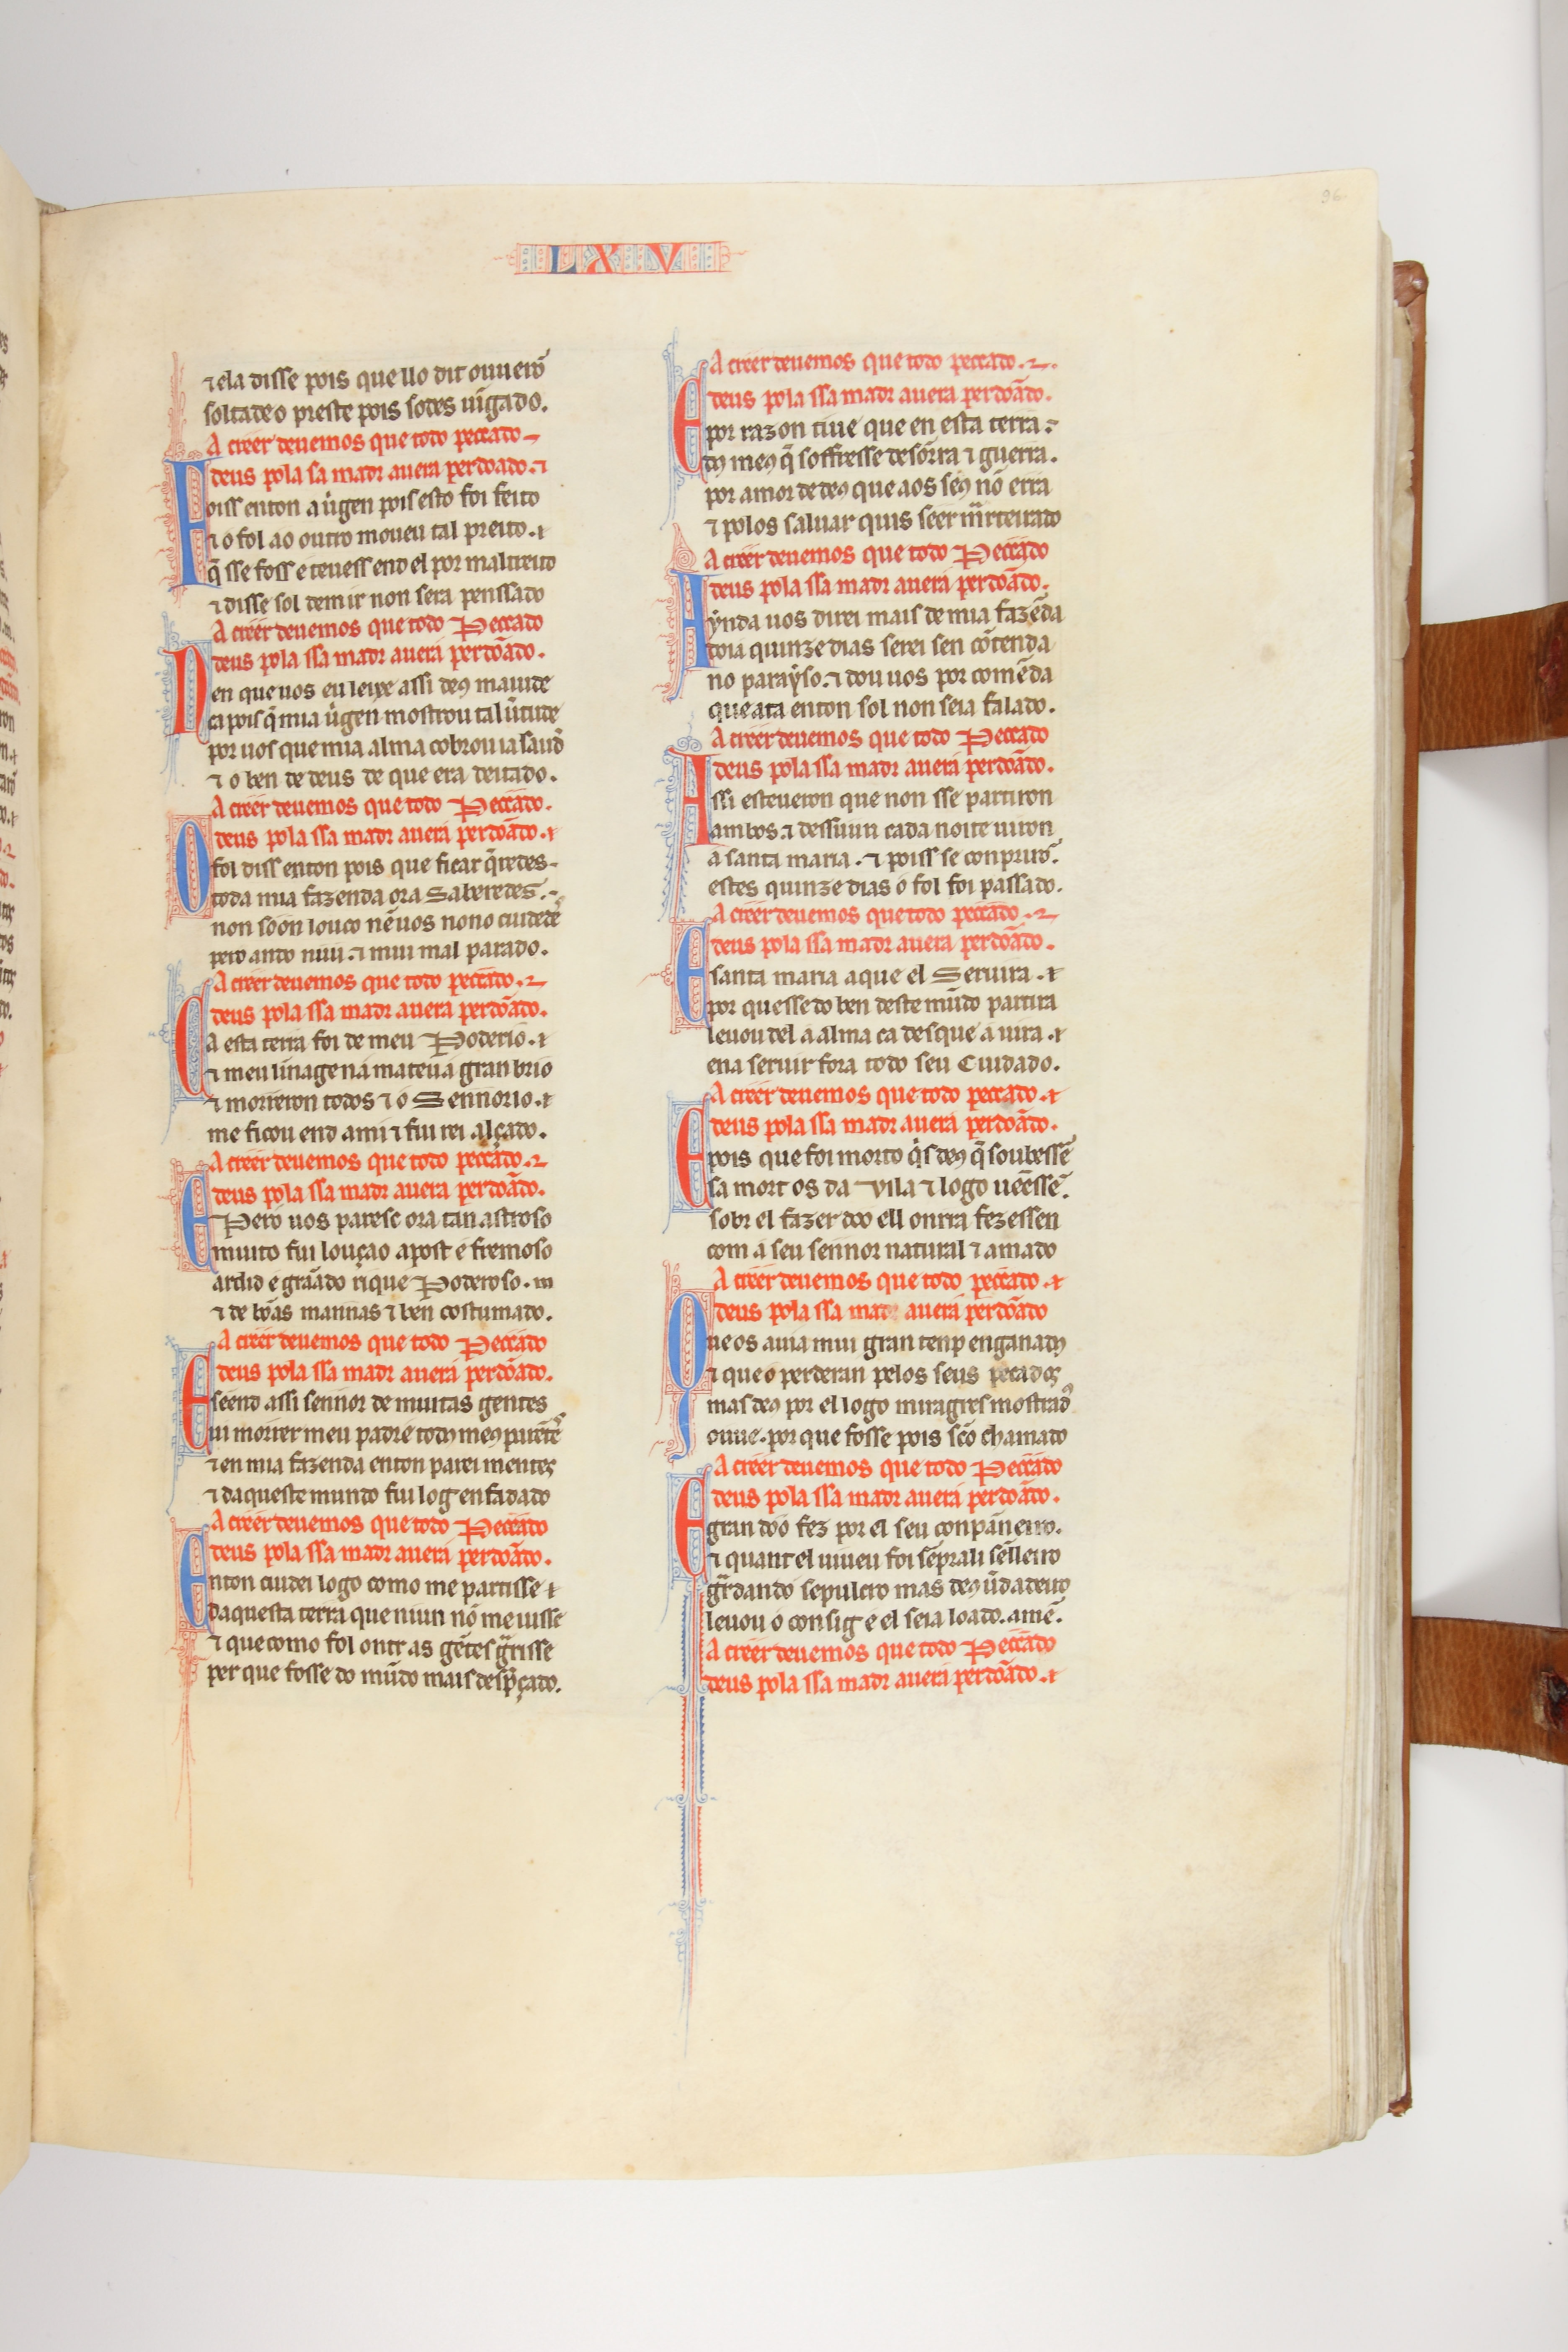 96
LXV
⁊ ela disse pois que llo dit ouuerõ
soltade o preste pois sodes uĩgado.
A creer deuemos que todo peccado
deus pola sa madr auera perdoado. ⁊
Poiss enton a uirgen pois esto foi feito
⁊ o fol ao outro moueu tal preito. ⁊
q̃ sse foss e teuess end el por maltreito
⁊ disse sol de m ir non sera penssado
A creer deuemos que todo Peccado
deus pola ssa madr auerá perdõado.
Nen que uos eu leixe assi deꝰ maiude
ca pois q̃ mia uirgen mostrou tal uertude
por uos que mia alma cobrou ia saud̃
⁊ o ben de deus de que era deitado.
A creer deuemos que todo Peccado.
deus pola ssa madr auera perdõado. ⁊
O fol diss enton pois que ficar q̃redes
toda mia fazenda ora Saberedes.
non sóón louco nẽ uos nono cuidedẽ
pero ando nuu. ⁊ mui mal parado.
A creer deuemos que todo peccado.
deus pola ssa madr auera perdõado.
Ca esta terra foi de meu Poderio. ⁊
⁊ meu linage na mateuá gran brio
⁊ morreron todos ⁊ o Sennorio. ⁊
me ficou end a mi ⁊ fui rei alçado.
A creer deuemos que todo peccado.
deus pola ssa madr auera perdõado.
E Pero uos paresc ora tan astroso
muito fui louçao apost e fremoso
ardid e grãado riqu e Poderoso.
⁊ de bõas mannas ⁊ ben costumado.
A creer deuemos que todo Peccado
deus pola ssa madr auerá perdõado.
E seend assi sennor de muitas gentes
ui morrer meu padre todꝰ meꝰ parẽtẽs
⁊ en mia fazenda enton parei mentes
⁊ daqueste mundo fui log enfadado
A creer deuemos que todo Peccado
deus pola ssa madr auerá perdõado.
Enton cuidei logo como me partisse ⁊
daquesta terra que niun nõ me uisse
⁊ que como fol ontr as gẽtes g̃risse
per que fosse do mũdo mais desp̃çado.
A creer deuemos que todo peccado.
deus pola ssa madr auera perdõado.
E por razon tiue que en esta terra
dꝰ meꝰ q̃ soffresse desõrra ⁊ guerra.
por amor de deꝰ que aos seꝰ nõ erra
⁊ polos saluar quis seer m̃rteirado
A creer deuemos que todo Peccado
deus pola ssa madr auerá perdõado.
Aynda uos direi mais de mia fazẽda
doia quinze dias serei sen cõtenda
no parayso. ⁊ dou uos por comẽda
que ata enton sol non seia falado.
A creer deuemos que todo Peccado
deus pola ssa madr auera perdõado.
Assi esteueron que non sse partiron
ambos. ⁊ dessũun cada noite uiron
a santa maria. ⁊ poiss se conpriro.
estes quinze dias o fol foi passado.
A creer deuemos que todo peccado.
deus pola ssa madr auera perdõado.
E santa maria a que el Seruira. ⁊
por que sse do ben deste mũdo partira
leuou del a alma ca des que a uira. ⁊
ena seruir fora todo seu Cuidado.
A creer deuemos que todo peccado. ⁊
deus pola ssa madr auerá perdõado.
E pois que foi morto q̃s deꝰ q̃ soubessẽ
sa mort os da Vila ⁊ logo uẽessẽ.
sobr el fazer doo ⁊ ll onrra fezessen
com a seu sennor natural ⁊ amado
A creer deuemos que todo peccado ⁊
deus pola ssa madr auera perdõado
Que os auia mui gran tenp enganadꝰ
⁊ que o perderan pelos seus pecados
mas deꝰ por el logo miragres mostradꝰ
ouue. por que fosse pois sc̃o chamado
A creer deuemos que todo Peccado
deus pola ssa madr auerá perdõado.
E gran doo fez por el seu conpãneiro.
⁊ quant el uiueu foi senpr ali sẽlleiro
g̃rdando sepulcro mas deꝰ ũdadeiro
leuou o consig e el seia loado. amẽ.
A creer deuemos que todo Peccado
deus pola ssa madr auerá perdõado. ⁊